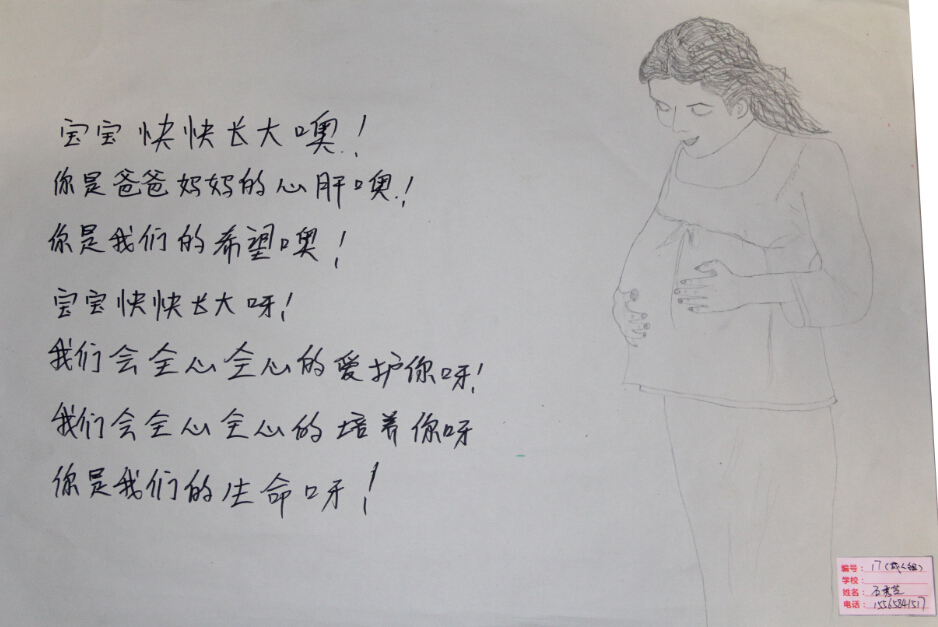 宝宝快快长大噢！
你是爸爸妈妈的心肝噢！
你是我们的希望噢！
宝宝快快长大呀！
我们会全心全心的爱护你呀！
我们会全心全心的培养你呀
你是我们的生命呀！
编号：17（成人组）
学校：
姓名：石秀芝
电话：15565841517